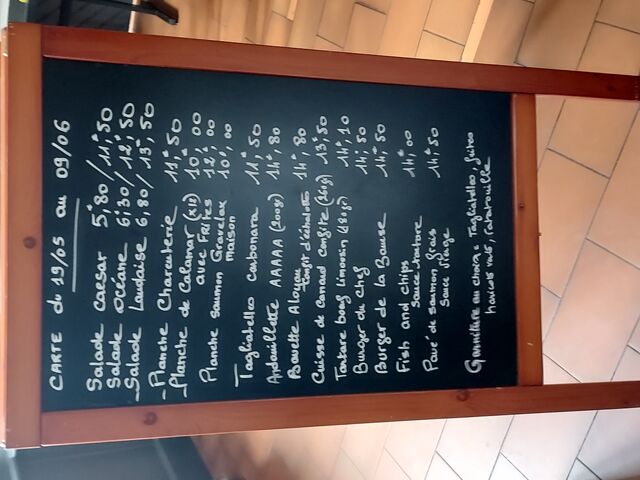 CARTE du 19/05 au 09/06
Salade Caesar 5,80 / 11,50
Salade Océane 6,30 / 12,50
- Salade Landaise 6,80 / 13,50
- Planche Charcuterie 11,50
- Planche de Calamar (x12) 10,00
avec FRITES 12,00
Planche saumon Gravelax 10,00
maison
Tagliatelles carbonara 11,50
Andouillette AAAAA (200g) 14,80
Bavette Aloyau 14,80
confit d'échalottes
Cuisse de canard confite 13,50
Tartare boeuf Limousin (180gr) 14,10
Burger du chef 14,50
Burger de la Bourse 14,50
Fish and chips 14,00
sauce tartare
Pavé de saumon frais 14,50
sauce vierge
Garniture au choix : Tagliatelles, frites
haricots verts, ratatouille